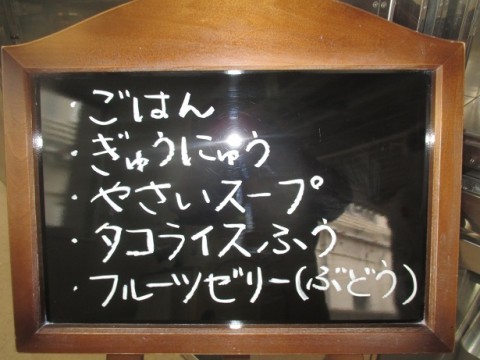 ・ごはん
・ぎゅうにゅう
・やさいスープ
・タコライスふう
・フルーツゼリー(ぶどう)